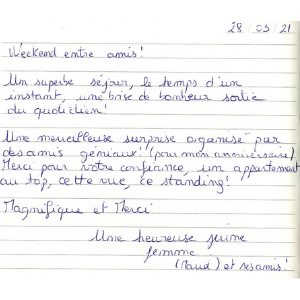 28/03/21
Weekend entre amis!
Un superbe séjour, le temps d'un
instant, une brise de bonheur sortie
du quotidien!
Une merveilleuse surprise organisé par
des amis géniaux! (pour mon anniversaire)
Merci pour votre confiance, un appartement
au top, cette vue, ce standing!
Magnifique et Merci
Une heureuse jeune
femme
(Maud) et ses amis!